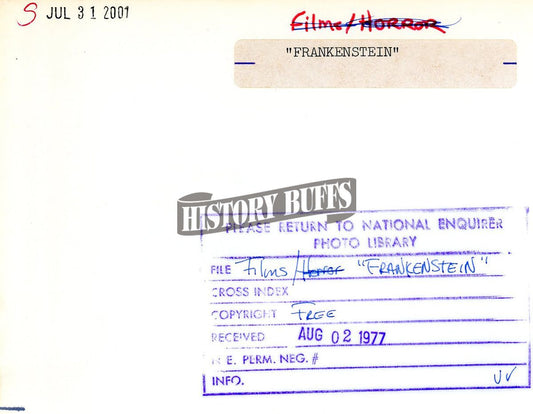 S JUL 31 2001
Films/Horror
"FRANKENSTEIN"
HISTORY BUFFS
PLEASE RETURN TO NATIONAL ENQUIRER
PHOTO LIBRARY
FILE Films/Horror "FRANKENSTEIN"
CROSS INDEX
COPYRIGHT FREE
RECEIVED AUG 02 1977
N.E. PERM. NEG. #
INFO.